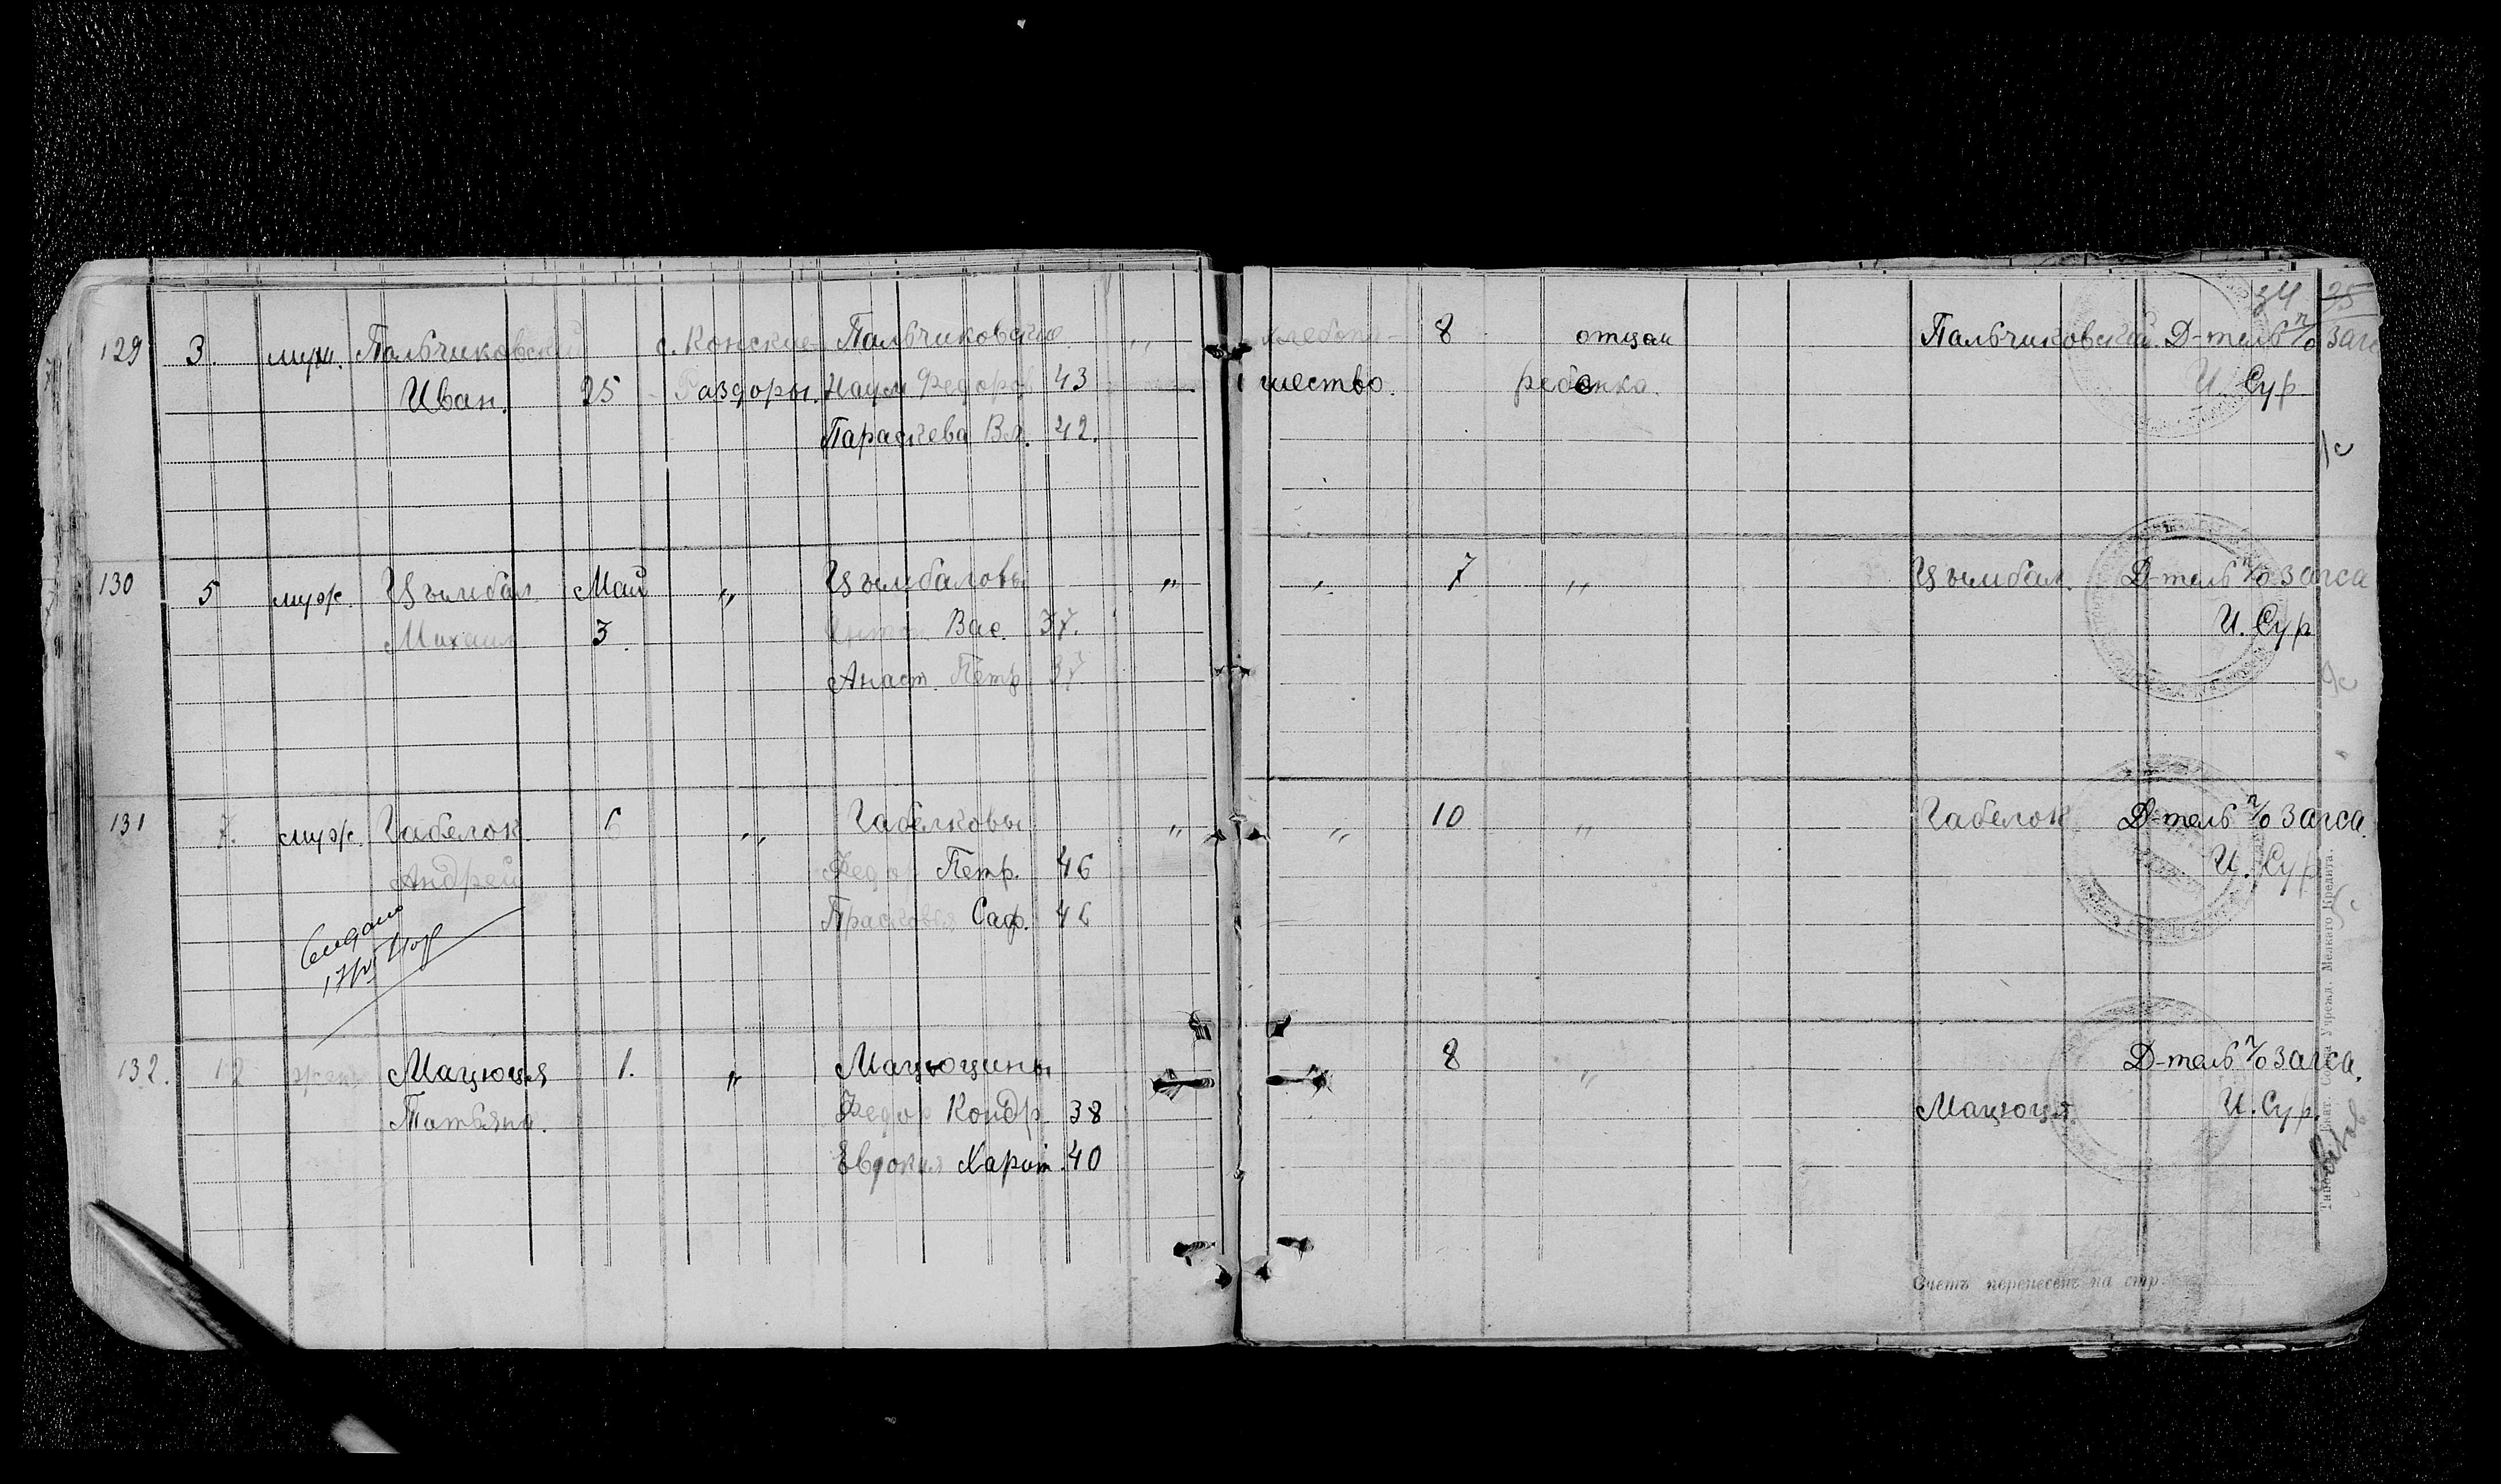 34 25
129 3. муж. Пальчиковский с. Конские- Пальчиковские „ хлебопа- 8 отцом Пальчиковский. Д-тель п/о Загс
Иван. 25 Раздоры. Наум Федоров 43 шество. ребенка. И. Сур
Параскева Вл. 42.
130 5 муж. Цымбал Май „ Цымбаловы „ „ 7 „ Цымбал. Д-тель п/о Загса
Михаил 3. Вас. 37. И. Сур
Анаст. Петр. 37.
131 7. муж. Чабелок 6 „ Чабелковы „ „ 10 „ Чабелок Д-тель п/о Загса.
Андрей Федор Петр. 46 И. Сур
Прасковья Саф. 46
132. 12 жен. Мацюця 1. „ Мацюцины 8 „ Д-тель п/о Загса.
Татьяна. Федор Кондр. 38 Мацюця И. Сур.
Евдокия Харит. 40
Счетъ перенесенъ на стр.